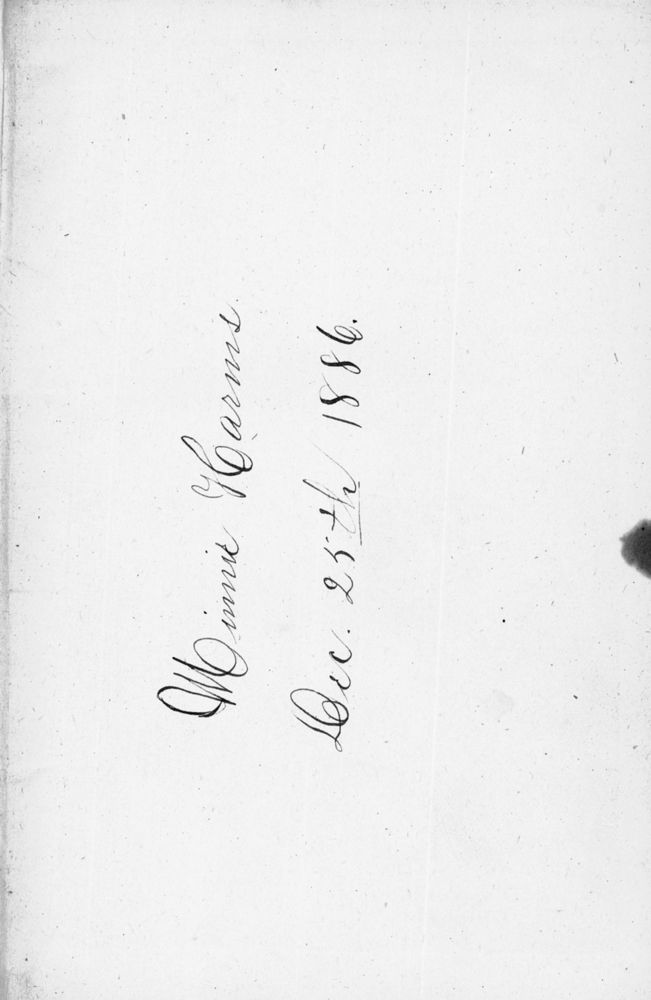 Minnie Harms
Dec. 25th 1886.